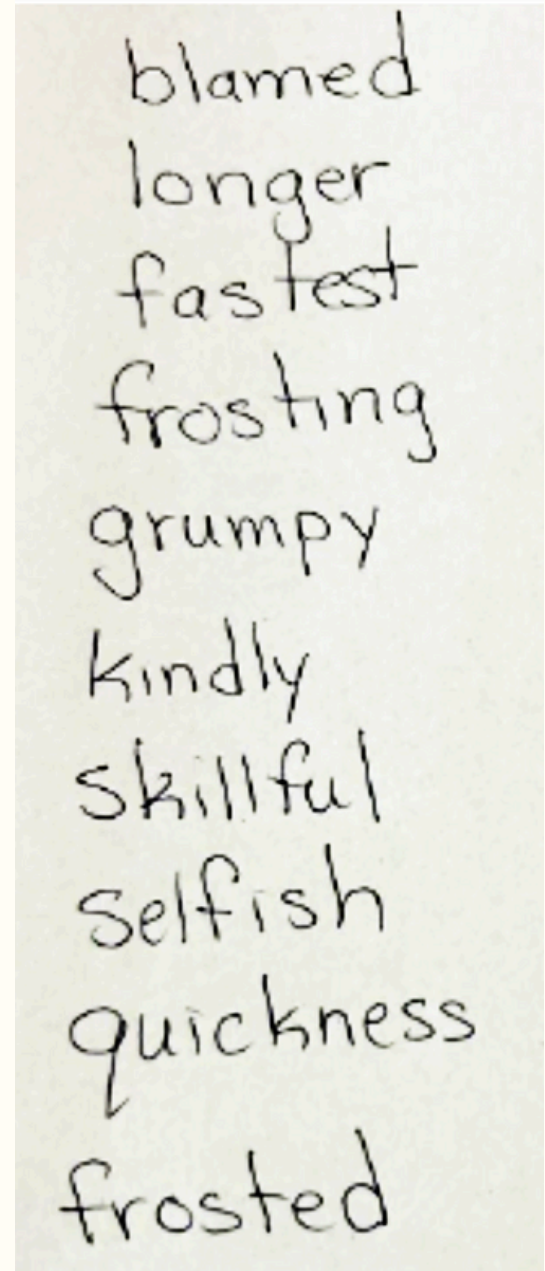 blamed
longer
fastest
frosting
grumpy
kindly
skillful
selfish
quickness
frosted